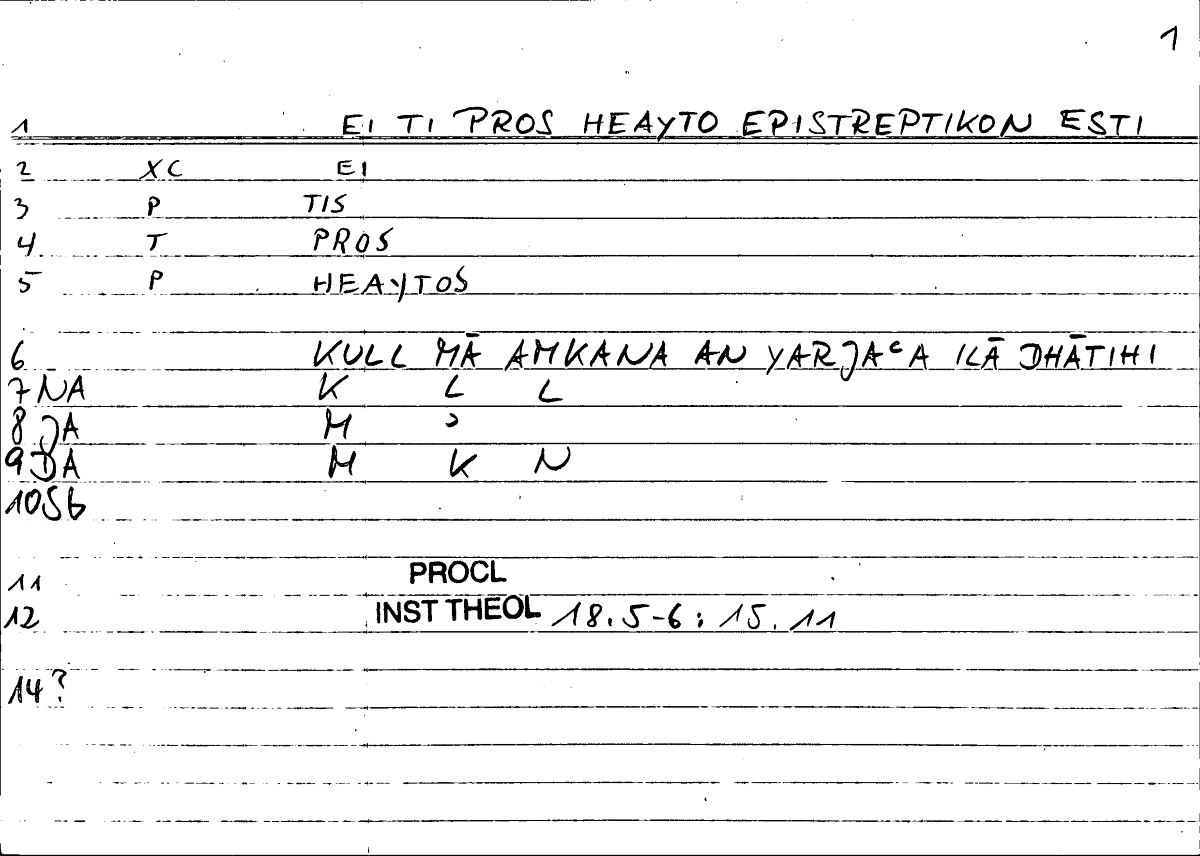 1
1 EI TI PROS HEAYTO EPISTREPTIKON ESTI
2 XC EI
3 P TIS
4 T PROS
5 P HEAYTOS
6 KULL MĀ AMKANA AN YARJAᶜA ILĀ DHĀTIHI
7 NA K L L
8 JA M ʾ
9 DA M K N
10 SB
11 PROCL
12 INST THEOL 18.5-6 : 15.11
14 ?